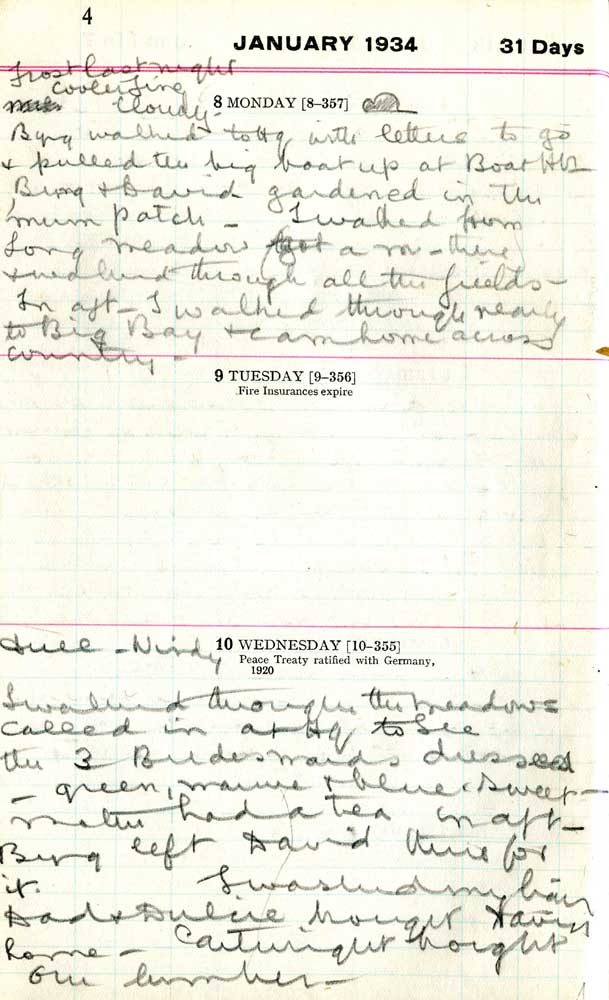 4
JANUARY 1934 31 Days
Frost last night
cooler fine
Cloudy.
8 MONDAY [8–357]
Byng walked to Hq with letters to go
& pulled the big boat up at Boat Hbr
Byng & David gardened in the
mum patch – I walked from
Long meadow a m – there
& walked through all the fields –
In aft – I walked through nearly
to Big Bay & cam home across
country –
9 TUESDAY [9–356]
Fire Insurances expire
Dull – Windy
10 WEDNESDAY [10–355]
Peace Treaty ratified with Germany,
1920
I walked through the meadows
called in at Hq to see
the 3 Bridesmaids dressed
– green, mauve & blue. Sweet –
had a tea in aft –
Byng left David there for
it. I washed my hair
Dad & Dulcie brought David
home – Cartwright bought
our lumber –